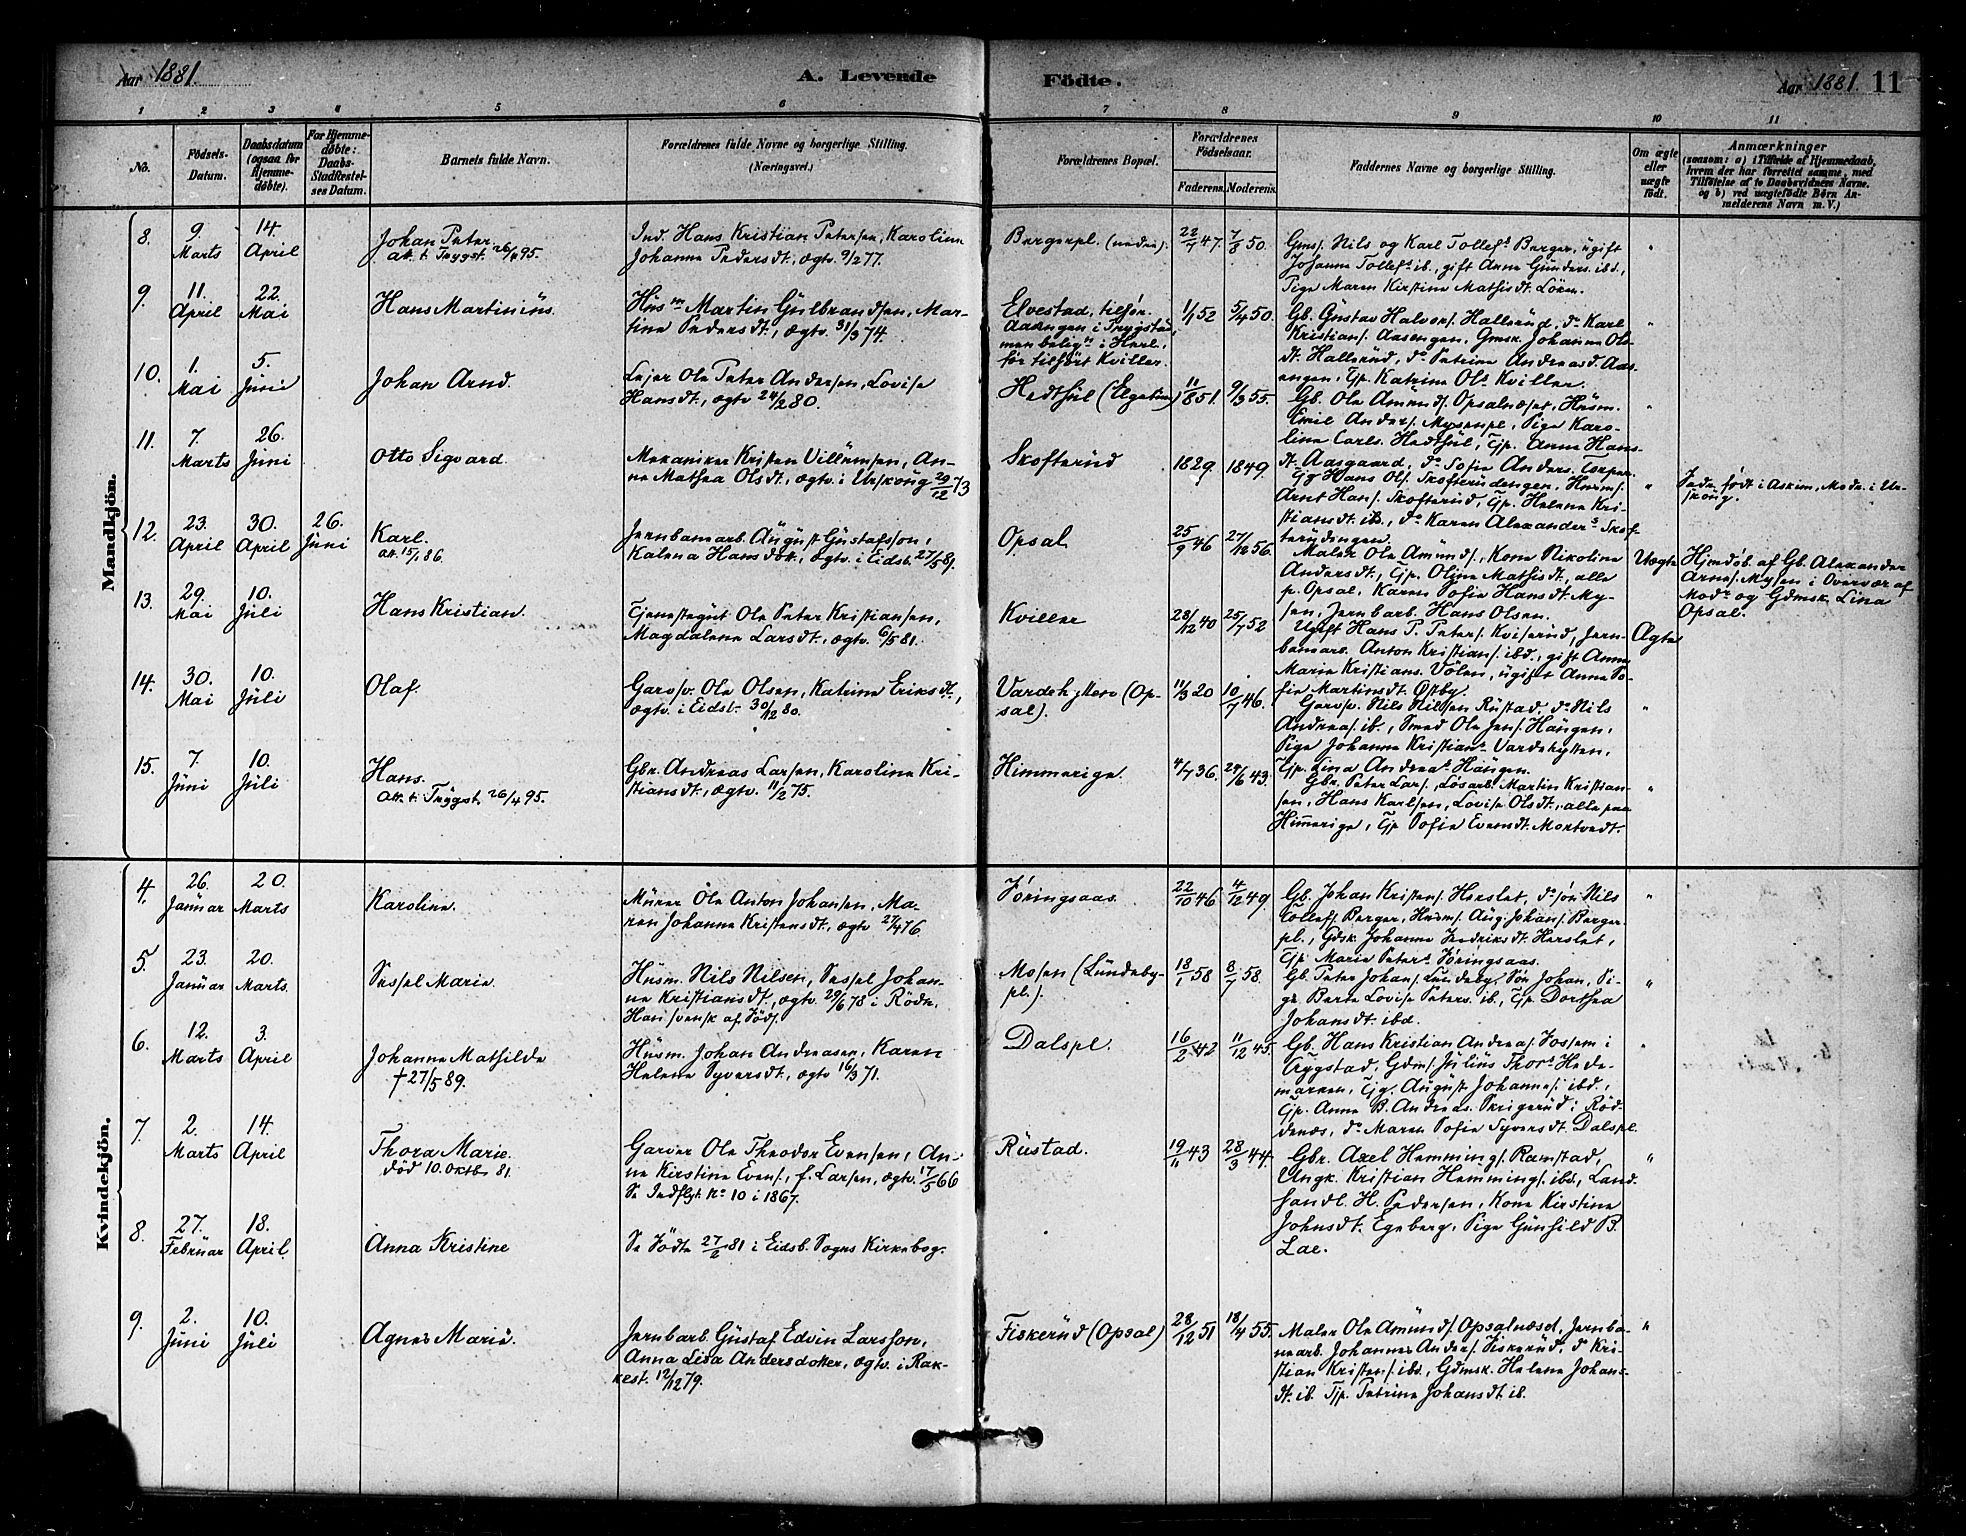 Aar 1881.
A. Levende
Födte.
Aar 1881. 11
1 2 3 4 5 6 7 8 9 10 11
No.
Födsels-
Datum.
Daabsdatum
(ogsaa for
Hjemme-
döbte).
For Hjemme-
döbte:
Daabs-
Stadfæstel-
ses Datum.
Barnets fulde Navn.
Forældrenes fulde Navne og borgerlige Stilling.
(Næringsvei.)
Forældrenes Bopæl.
Forældrenes
Födselsaar.
Faderens. Moderens.
Faddernes Navne og borgerlige Stilling.
Om ægte
eller
uægte
födt.
Anmærkninger
(saasom: a) i Tilfælde af Hjemmedaab,
hvem der har forrettet samme, med
Tilföielse af to Daabsvidners Navne.
og b) ved uægtefödte Börn An-
melderens Navn m. V.)
Mandkjön.
8.
9.
Marts
14.
April
Johan Peter
att. t. Trygst. 26/4 95.
Ind. Hans Kristian Petersen, Karoline
Johanne Pedersdt., ægtv. 9/2 77.
Bergerpl. (nedre).
22/7 47. 7/8 50.
Gms/. Nils og Karl Tollefs. Berger, ugift
Johanne Tollefs. ib., gift Anne Gunders. ibd.,
Pige Maren Kirstine Mathisdt. Löken.
9.
11.
April
22.
Mai
Hans Martinius
Husm. Martin Gulbrandsen, Mar-
tine Pedersdt., ægtv. 31/3 74.
Elvestad, tilhör.
Aasengen i Trygstad,
men belig. i Herl.,
för tilhört Kviller.
1/1 52 5/4 50.
Gb. Gustav Halvors/. Hallerud, do Karl
Kristians/. Aasengen, Gmsk. Johanne Ols-
dt. Hallerud, do Petrine Andreasd. Aas-
engen, Tjp. Katrine Ols. Kviller.
10.
1.
Mai
5.
Juni
Johan Arnd.
Lejer Ole Peter Andersen, Lovise
Hansdt., ægtv 24/2 80.
Hedthul (Egetun)
11/8 51. 9/3 55.
Gb. Ole Amunds/. Opsalnæset, Husm.
Emil Anders/. Mysenpl., Pige Karo-
line Carls. Hedthul, Tjp. Anne Hans-
dt. Aasgaard, do Sofie Anders. Torper.
11.
7.
Marts
26.
Juni
Otto Sigvard.
Mekaniker Kristen Villumsen, An-
ne Mathea Olsdt., ægtv. i Urskoug 29/12 73
Skofterud
1829. 1849.
Tjg Hans Ols/. Skofterudengen, Husm/.
Arnt Hans/. Skofterud, Tjp. Helene Kri-
stiansdt. ib., do Karen Alexanders. Skof-
terudengen.
Fadr. födt i Askim, Modr. i Ur-
skoug.
12.
23.
April
30.
April
26.
Juni
Karl.
att. 15/1 86.
Jernbanearb. August Gustafsson,
Kalena Hansdtr., ægtv. i Eidsb. 27/5 81.
Opsal
25/9 46 27/12 56.
Maler Ole Amunds/., Kone Nikoline
Andersdt., Tjp. Oline Mathisdt., alle
p. Opsal, Karen Sofie Hansdt. My-
sen, Jernbarb. Hans Olsen.
Uægte
Hjmdöb. af Gb. Alexander
Arnes/. Mysen i Overvær af
Modr og Gdmsk. Lina
Opsal.
13.
29.
Mai
10.
Juli
Hans Kristian.
Tjenstegut Ole Peter Kristiansen,
Magdalene Larsdt., ægtv. 6/5 81.
Kviller
28/12 40 25/7 52
Ugift Hans P. Peters/. Kviserud, Jern-
banearb. Anton Kristians/. ibd., gift Anne
Marie Kristians. Volen, ugift Anne So-
fie Martinsdt. Östby.
Ægte
14.
30.
Mai
10.
Juli
Olaf.
Garvsv. Ole Olsen, Katrine Eriksdt.,
ægtv. i Eidsb. 30/12 80.
Vardehytten (Op-
sal).
11/3 20 10/7 46.
Garvsv. Nils Nilsen Rustad, do Nils
Andreas/. ib., Smed Ole Jens/. Haugen,
Pige Johanne Kristians. Vardehytten,
Tjp. Lina Andreas. Haugen.
15.
7.
Juni
10.
Juli
Hans.
Att. t. Trygst. 26/4 95.
Gbr. Andreas Larsen, Karoline Kri-
stiansdt., ægtv. 11/2 75.
Himmerige.
4/7 36. 24/6 43.
Gbr. Peter Lars/., Lösarb. Martin Kristian-
sen, Hans Karlsen, Lovise Olsdt., alle paa
Himerige, Tjp Sofie Evensdt. Mortvedt.
Kvindekjön.
4.
26.
Januar
20.
Marts
Karoline.
Murer Ole Anton Johansen, Ma-
ren Johanne Kristensdt., ægtv 27/4 76.
Jöringsaas.
22/10 46 4/12 49
Gb. Johan Kristens/. Herslet, do sön Nils
Tollefs/. Berger, Husm/. Aug. Johans/. Berger-
pl., Gdsk. Johanne Fredriksdt. Herslet,
Tjp Marie Peters. Jöringsaas.
5.
23.
Januar
20.
Marts.
Sessel Marie
Husm. Nils Nilsen, Sessel Johan-
ne Kristiansdt., ægtv. 29/6 78 i Rödn.
Han svensk af Föds.
Mosen (Lundeby-
pl.).
18/1 58 8/7 58.
Gb. Peter Johans/. Lundeby, Sön Johan, Pi-
ge Berte Lovise Peters. ib., Tjp Dorthea
Johansdt. ibd.
6.
12.
Marts
3.
April
Johanne Mathilde
† 27/5 89.
Husm. Johan Andreasen, Karen
Helene Syversdt., ægtv 16/3 71.
Dalspl.
16/2 42 11/12 45.
Gb. Hans Kristian Andreas/. Fossem i
Trygstad, Gdm/. Julius Thors. Hede-
marken, Tjg. August Johannes/. ibd.,
Tjp. Anne B. Andreas. Skrigerud i Röd-
denæs, do Maren Sofie Syversdt. Dalspl.
7.
2.
Marts
14.
April
Thora Marie.
död 10. Oktbr 81.
Garver Ole Theodor Evensen, An-
ne Kirstine Evens/. f. Larsen, ægtv. 17/5 66
Se Indflyt. No 10 i 1867.
Rustad.
19/11 43 28/3 44.
Gbr. Axel Hemmings/. Ramstad,
Ungk. Kristian Hemmings/. ibd., Land-
handl. H. Pedersen, Kone Kirstine
Johnsdt. Egeberg, Pige Gunhild B.
Lae.
8.
27.
Februar
18.
April.
Anna Kristine
Se Födte 27/2 81 i Eidsb. Sogns Kirkebog.
9.
2.
Juni
10.
Juli
Agnes Marie.
Jernbarb. Gustaf Edvin Larsson,
Anna Lisa Andersdotter, ægtv. i Rak-
kest. 12/12 79.
Fiskerud (Opsal)
28/12 51 18/4 55.
Maler Ole Amunds/. Opsalnæsed, Jernba-
nearb. Johannes Anders/. Fiskerud, do Kri-
stian Kristens/. ibd., Gdmsk. Helene Johans-
dt. ib. Tjp. Petrine Johansdt ib.